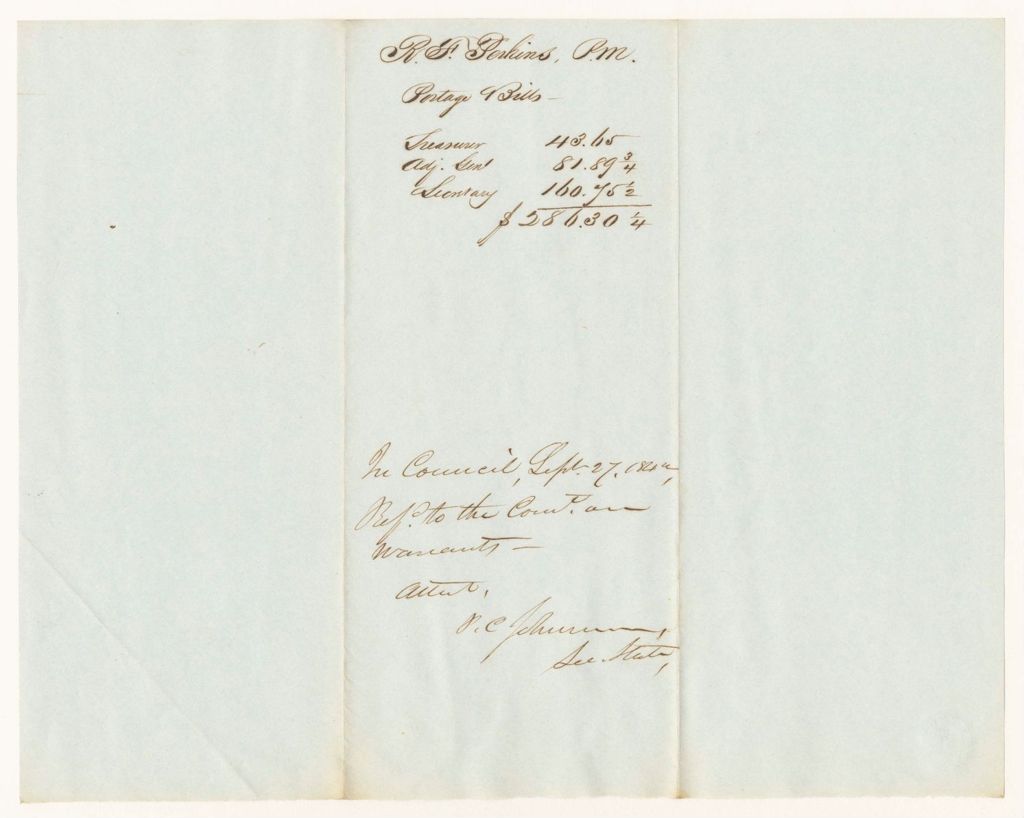 R. F. Perkins, P.M.
Postage Bills —
Treasurer 43.65
Adj. Genl 81.89 3/4
Secretary 160.75 1/2
$286.30 1/4
In Council, Sept. 27,
Refd. to the Comee. on
Warrants —
Attest,
P. C. Johnson,
Sec. State,